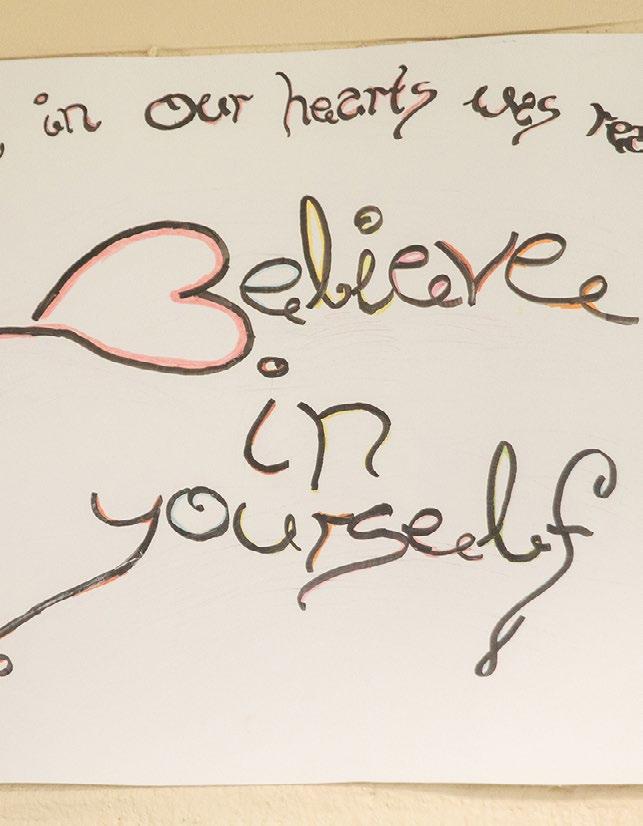 , in our hearts was
Believe
in
yourself